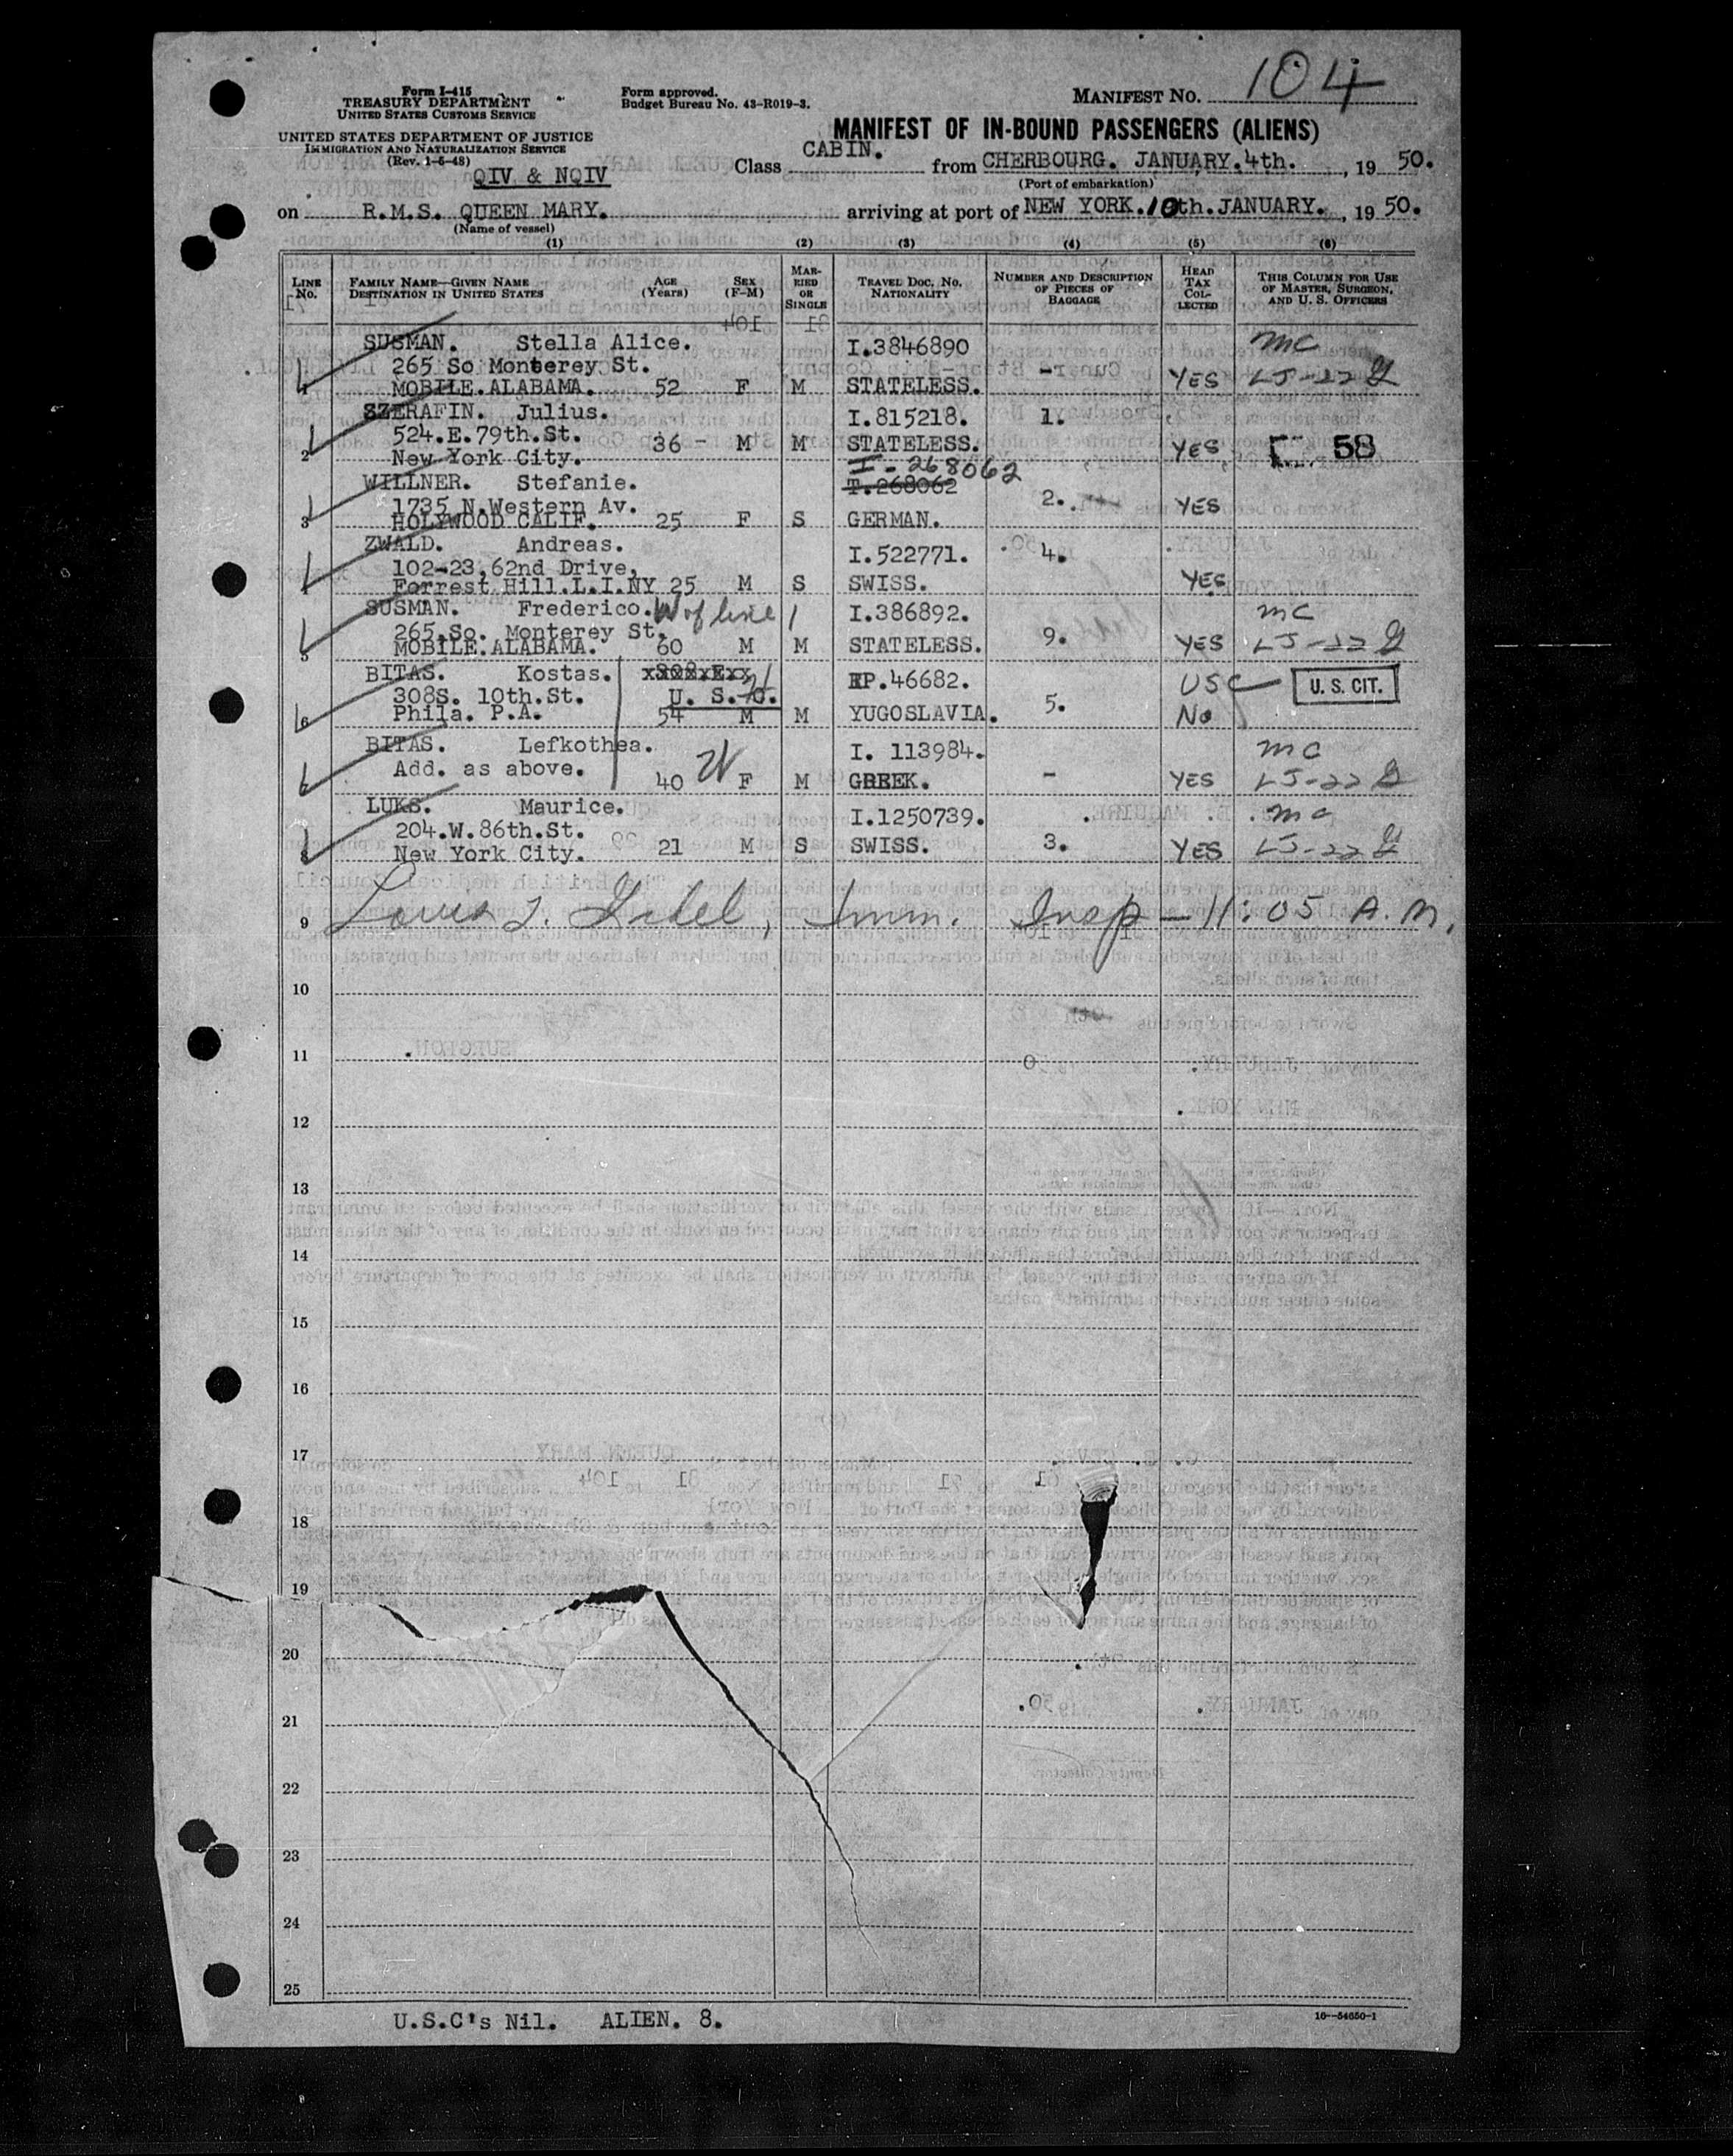 104
Form I-415
TREASURY DEPARTMENT
UNITED STATES CUSTOMS SERVICE
Form approved.
Budget Bureau No. 43-R019-3.
MANIFEST NO.
UNITED STATES DEPARTMENT OF JUSTICE
IMMIGRATION AND NATURALIZATION SERVICE
(Rev. 1-5-48)
MANIFEST OF IN-BOUND PASSENGERS (ALIENS)
QIV & NQIV
Class CABIN. from CHERBOURG. JANUARY.4th. , 19 50.
(Port of embarkation)
on R.M.S. QUEEN MARY. arriving at port of NEW YORK.10th.JANUARY. , 19 50.
(Name of vessel)
(1) (2) (3) (4) (5) (6)
LINE No. FAMILY NAME—GIVEN NAME DESTINATION IN UNITED STATES AGE (Years) SEX (F-M) MARRIED OR SINGLE TRAVEL DOC. NO. NATIONALITY NUMBER AND DESCRIPTION OF PIECES OF BAGGAGE HEAD TAX COLLECTED THIS COLUMN FOR USE OF MASTER, SURGEON, AND U. S. OFFICERS
SUSMAN. Stella Alice. I.3846890 mc
265 So Monterey St. -
1 MOBILE.ALABAMA. 52 F M STATELESS. YES LJ-22
SZERAFIN. Julius. I.815218. 1.
524.E.79th.St. 36 - M M STATELESS. YES 58
2 New York City.
I-268062
WILLNER. Stefanie. T.268062
1735 N.Western Av. 2. YES
3 HOLYWOOD CALIF. 25 F S GERMAN.
ZWALD. Andreas. I.522771. 4.
102-23.62nd Drive,
4 Forrest Hill.L.I.NY 25 M S SWISS. YES
SUSMAN. Frederico. W of line 1 I.386892. mc
265.So. Monterey St. 9.
5 MOBILE.ALABAMA. 60 M M STATELESS. YES LJ-22
BITAS. Kostas. P.46682. USC U. S. CIT.
308S. 10th.St. U. S. C. 5.
6 Phila. P.A. 54 M M YUGOSLAVIA. No
BITAS. Lefkothea. I. 113984. mc
Add. as above.
7 40 F M GREEK. - YES LJ-22
LUKS. Maurice. I.1250739. mc
204.W.86th.St.
8 New York City. 21 M S SWISS. 3. YES LJ-22
9 Louis Imm. Insp - 11:05 A.M.
10
11
12
13
14
15
16
17
18
19
20
21
22
23
24
25
U.S.C's Nil. ALIEN. 8.
16—54650-1